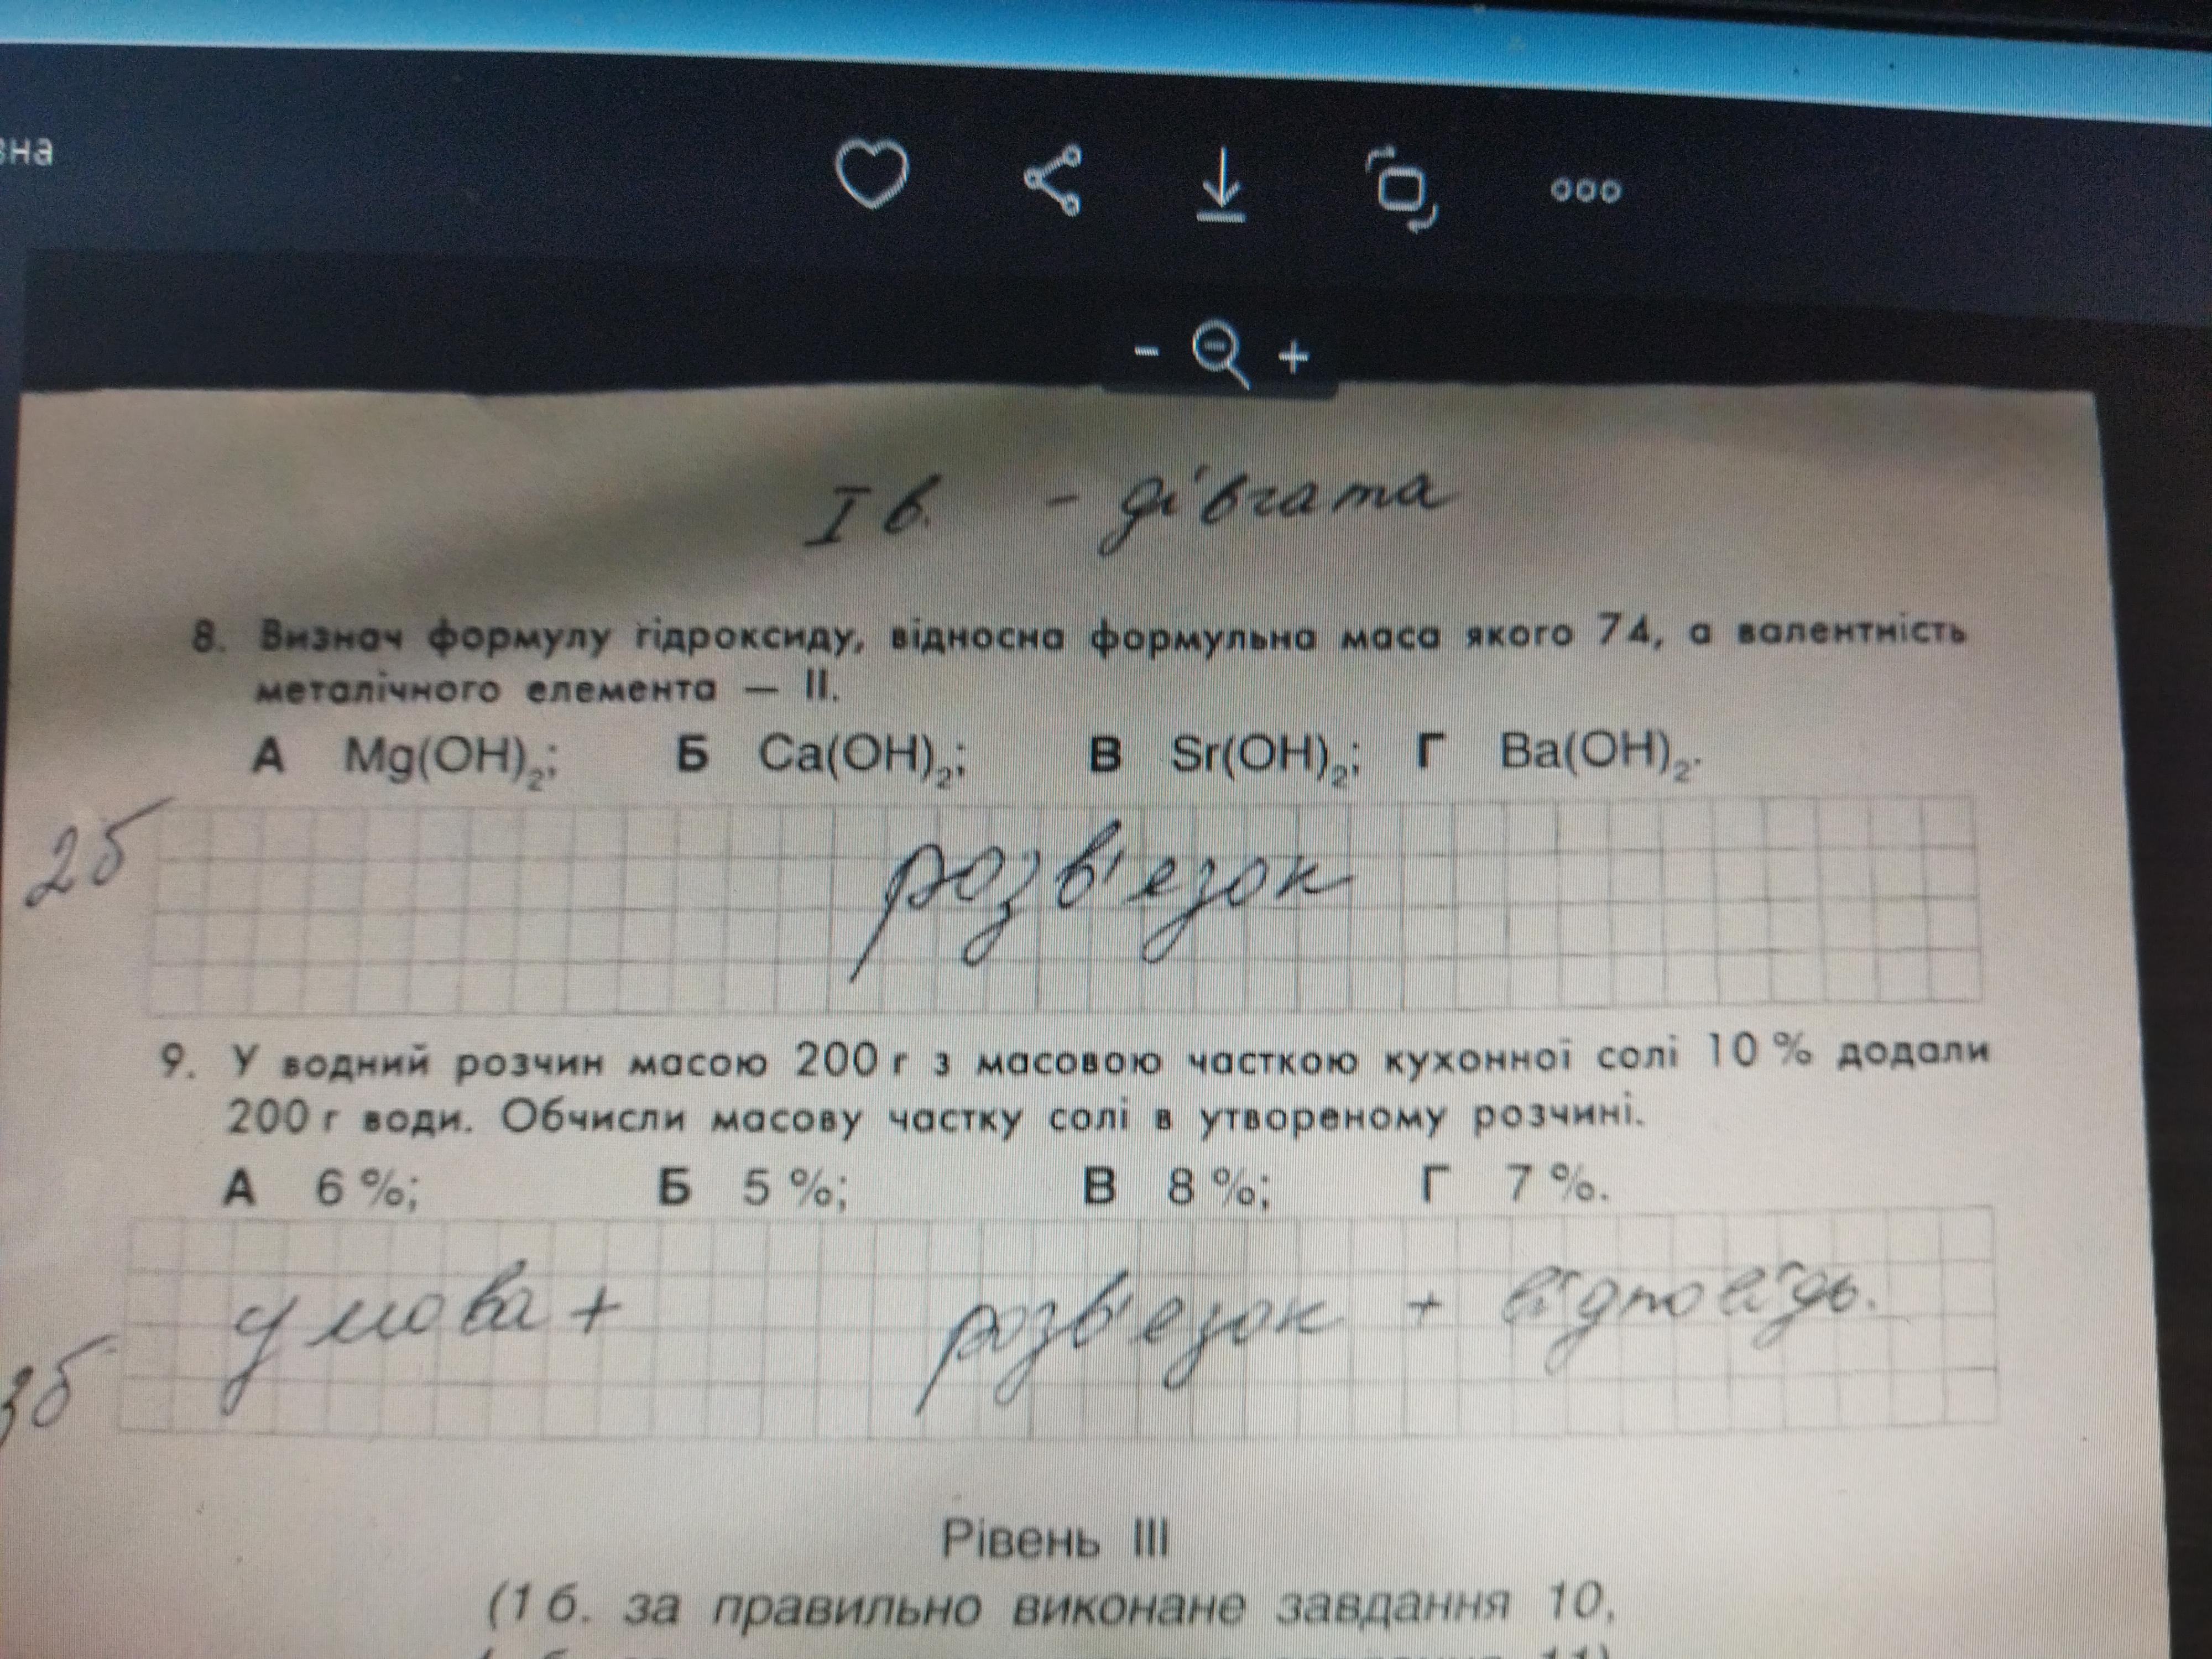 вна
І в. - дівчата
8. Визнач формулу гідроксиду, відносна формульна маса якого 74, а валентність
металічного елемента — II.
А Mg(OH)₂; Б Ca(OH)₂; В Sr(OH)₂; Г Ba(OH)₂.
2б розв'езок
9. У водний розчин масою 200 г з масовою часткою кухонної солі 10 % додали
200 г води. Обчисли масову частку солі в утвореному розчині.
А 6 %; Б 5 %; В 8 %; Г 7 %.
умова + розв'езок + відповідь.
3б
Рівень III
(1 б. за правильно виконане завдання 10,